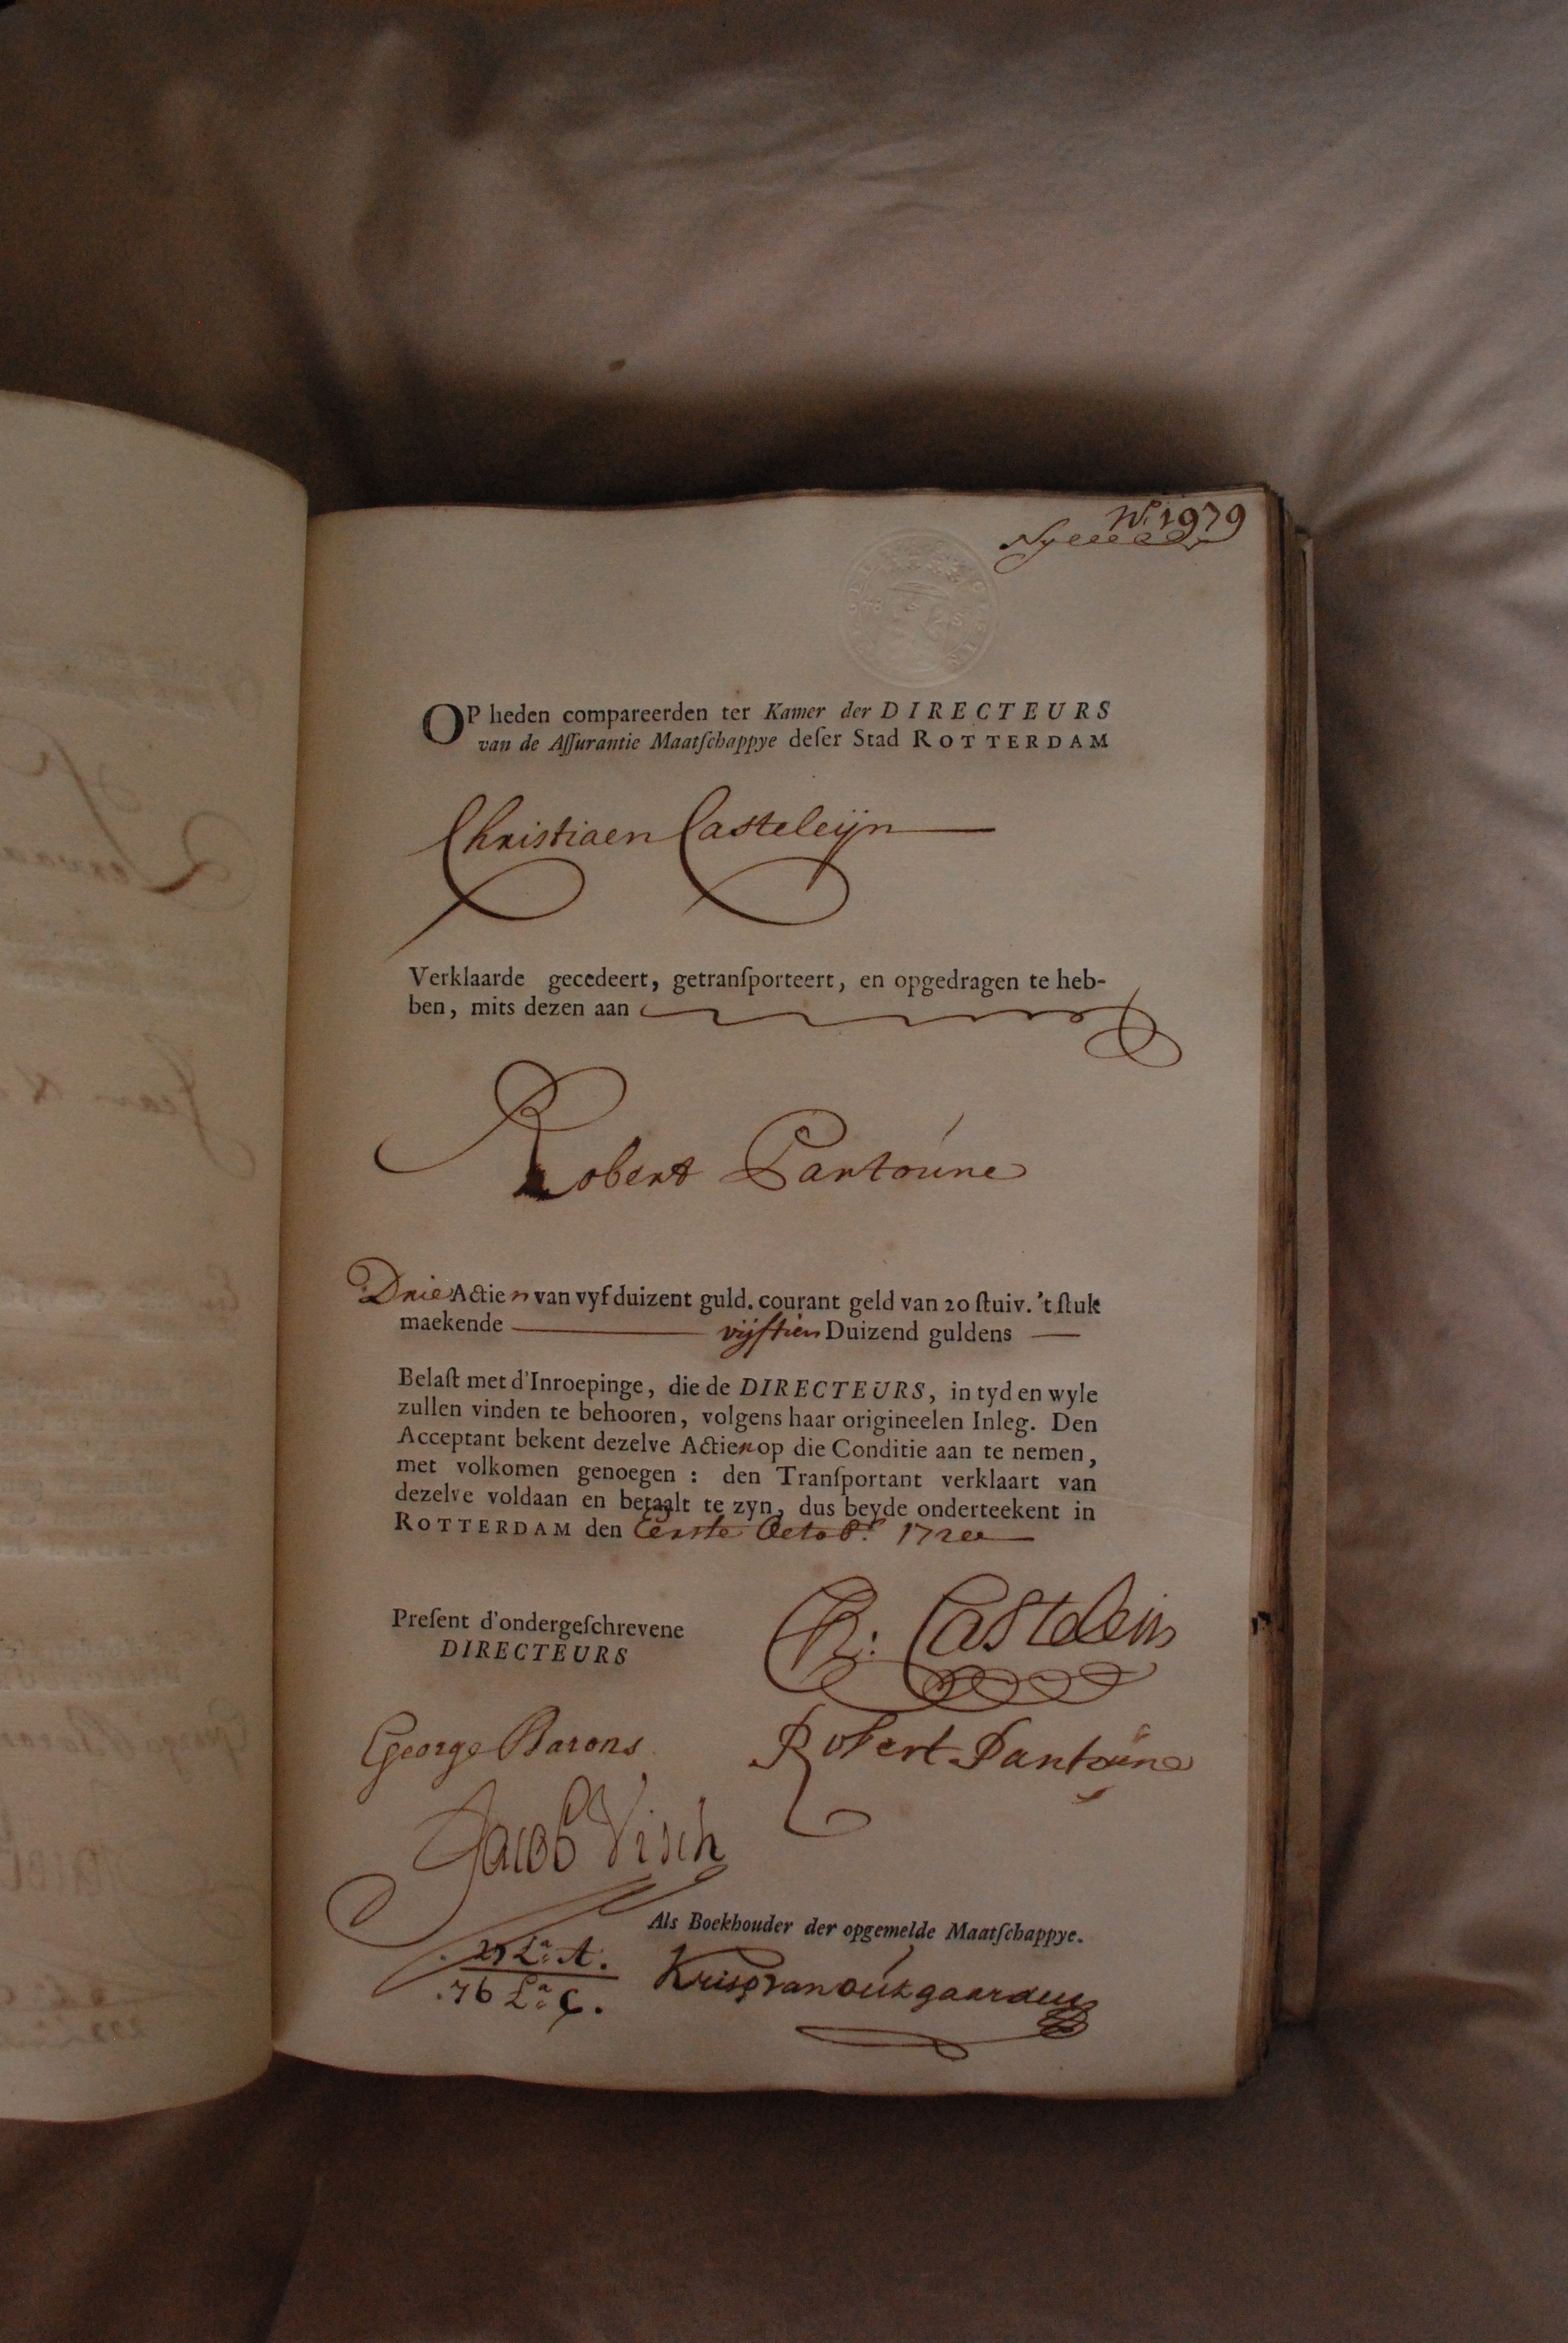 N.º 1979
OP heden compareerden ter Kamer der DIRECTEURS
van de Aſſurantie Maatſchappye deſer Stad ROTTERDAM
Christiaen Casteleijn
Verklaarde gecedeert, getranſporteert, en opgedragen te heb-
ben, mits dezen aan
Robert Pantoúne
Drie Actien van vyf duizent guld. courant geld van 20 ſtuiv. 't ſtuk
maekende vijftien Duizend guldens
Belaſt met d'Inroepinge, die de DIRECTEURS, in tyd en wyle
zullen vinden te behooren, volgens haar origineelen Inleg. Den
Acceptant bekent dezelve Actien op die Conditie aan te nemen,
met volkomen genoegen : den Tranſportant verklaart van
dezelve voldaan en betaalt te zyn, dus beyde onderteekent in
ROTTERDAM den Eerste Octob.r 1720
Preſent d'ondergeſchrevene
DIRECTEURS
Castelein
George Barons
Robert Pantoúne
Jacob Visch
Als Boekhouder der opgemelde Maatſchappye.
L.a A.
76 L.a C.